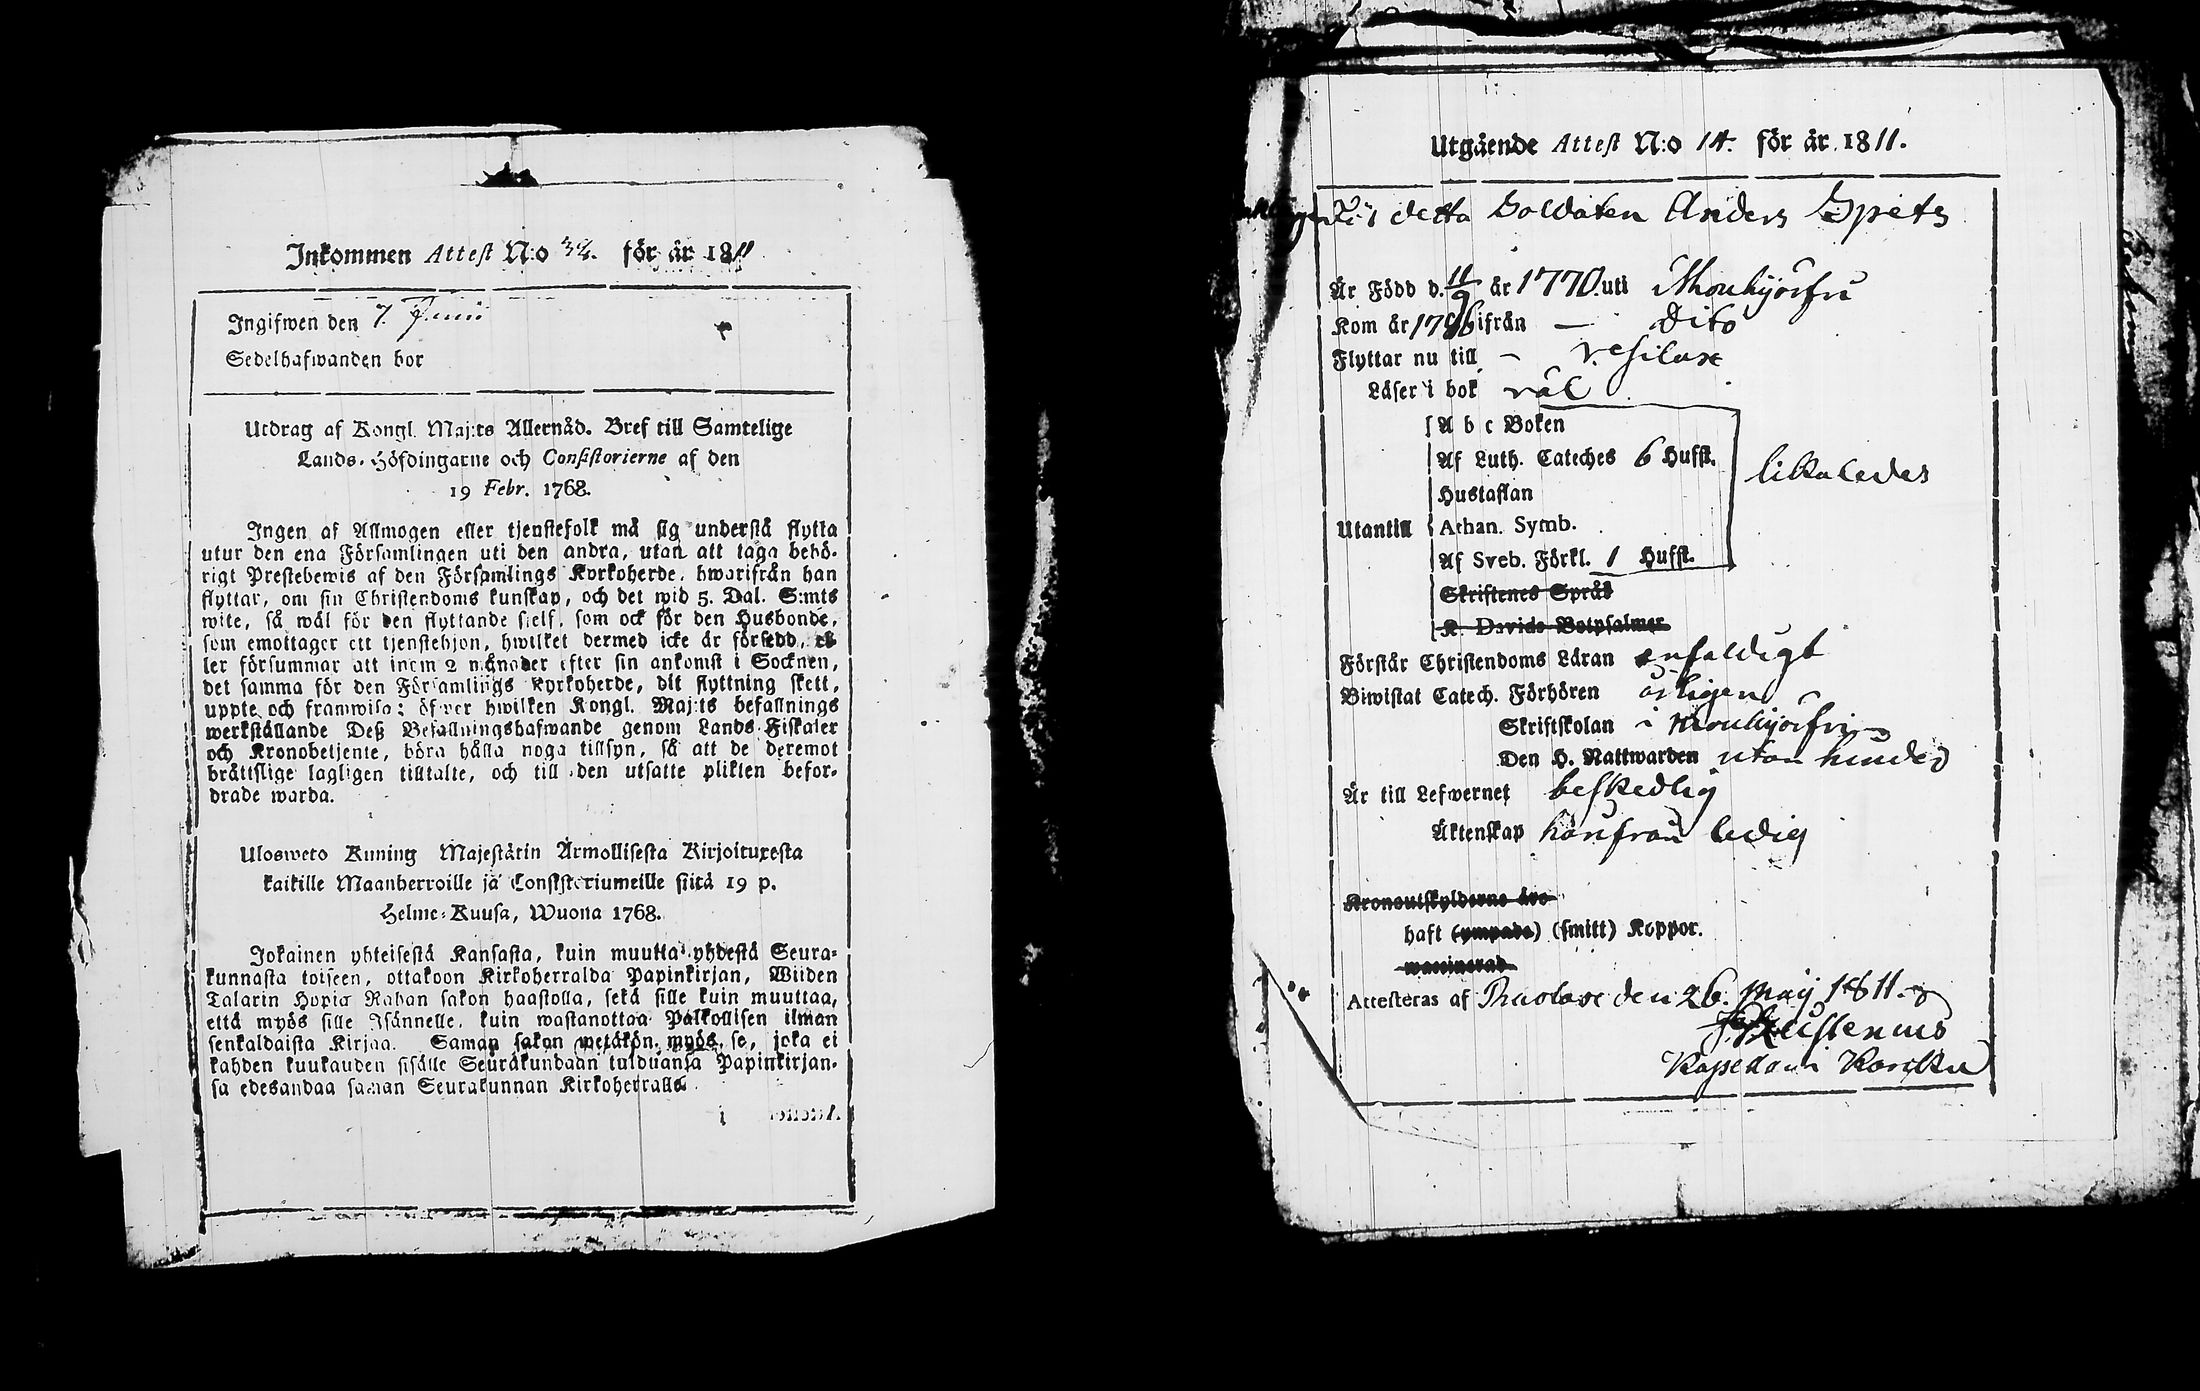 Inkommen Attest N:o 32. för år 1811
Ingifwen den 7. Junii
Sedelhafwanden bor
Utdrag af Kongl. Maj:ts Allernåd. Bref till Samtelige
Lands-Höfdingarne och Consistorierne af den
19 Febr. 1768.
Ingen af Allmogen eller tjenstefolk må sig understå flytta
utur den ena Församlingen uti den andra, utan att taga behö-
rigt Prestebewis af den Församlings Kyrkoherde, hwarifrån han
flyttar, om sin Christendoms kunskap, och det wid 5. Dal. S:mts
wite, så wäl för den flyttande sielf, som ock för den Husbonde,
som emottager ett tjenstehjon, hwilket dermed icke är försedd, el-
ler försummar att inom 2 månader efter sin ankomst i Socknen,
det samma för den Församlings Kyrkoherde, dit flyttning skett,
uppte och framwisa: öfwer hwilken Kongl. Maj:ts befallnings
werkställande Deß Befallningshafwande genom Lands-Fiskaler
och Kronobetjente, böra hålla noga tillsyn, så att de deremot
bråttslige lagligen tilltalte, och till den utsatte plikten befor-
drade warda.
Ulosweto Kuning Majestätin Armollisesta Kirjoituxesta
kaikille Maanherroille ja Consistoriumeille siitä 19 p.
Helme-Kuusa, Wuonna 1768.
Jokainen yhteisestä Kansasta, kuin muutta yhdestä Seura-
kunnasta toiseen, ottakoon Kirkoherralda Papinkirjan, Wiiden
Talarin Hopia Rahan sakon haastolla, sekä sille kuin muuttaa,
että myös sille Isännelle, kuin wastanottaa Palkollisen ilman
senkaldaista Kirjaa. Saman sakon wetäkön myös se, joka ei
kahden kuukauden sisälle Seurakundaan tulduansa Papinkirjan-
sa edesandaa saman Seurakunnan Kirkoherralle.
Utgående Attest N:o 14. för år 1811.
detta Soldaten Anders Spets
Är Född d. 11/9 år 1770. uti Mouhijärfvi
Kom år 1796 ifrån — Dito
Flyttar nu till – Vesilax
Läser i bok väl
A b c Boken
Af Luth. Cateches 6 Hufst.
likaledes
Hustaflan
Utantill
Athan. Symb.
Af Sveb. Förkl. 1 Hufst.
Skriftenes Språk
K. Davids Botpsalmer
Förstår Christendoms Läran enfaldigt
Biwistat Catech. Förhören årligen
Skriftskolan i Mouhijärfvi
Den H. Nattwarden utan hinder
Är till Lefwernet beskedlig
Äktenskap härifrån ledig
Kronoutskylderne äro
haft (ympade) (smitt) Koppor.
waccinerad
Attesteras af den 26. Maij 1811.